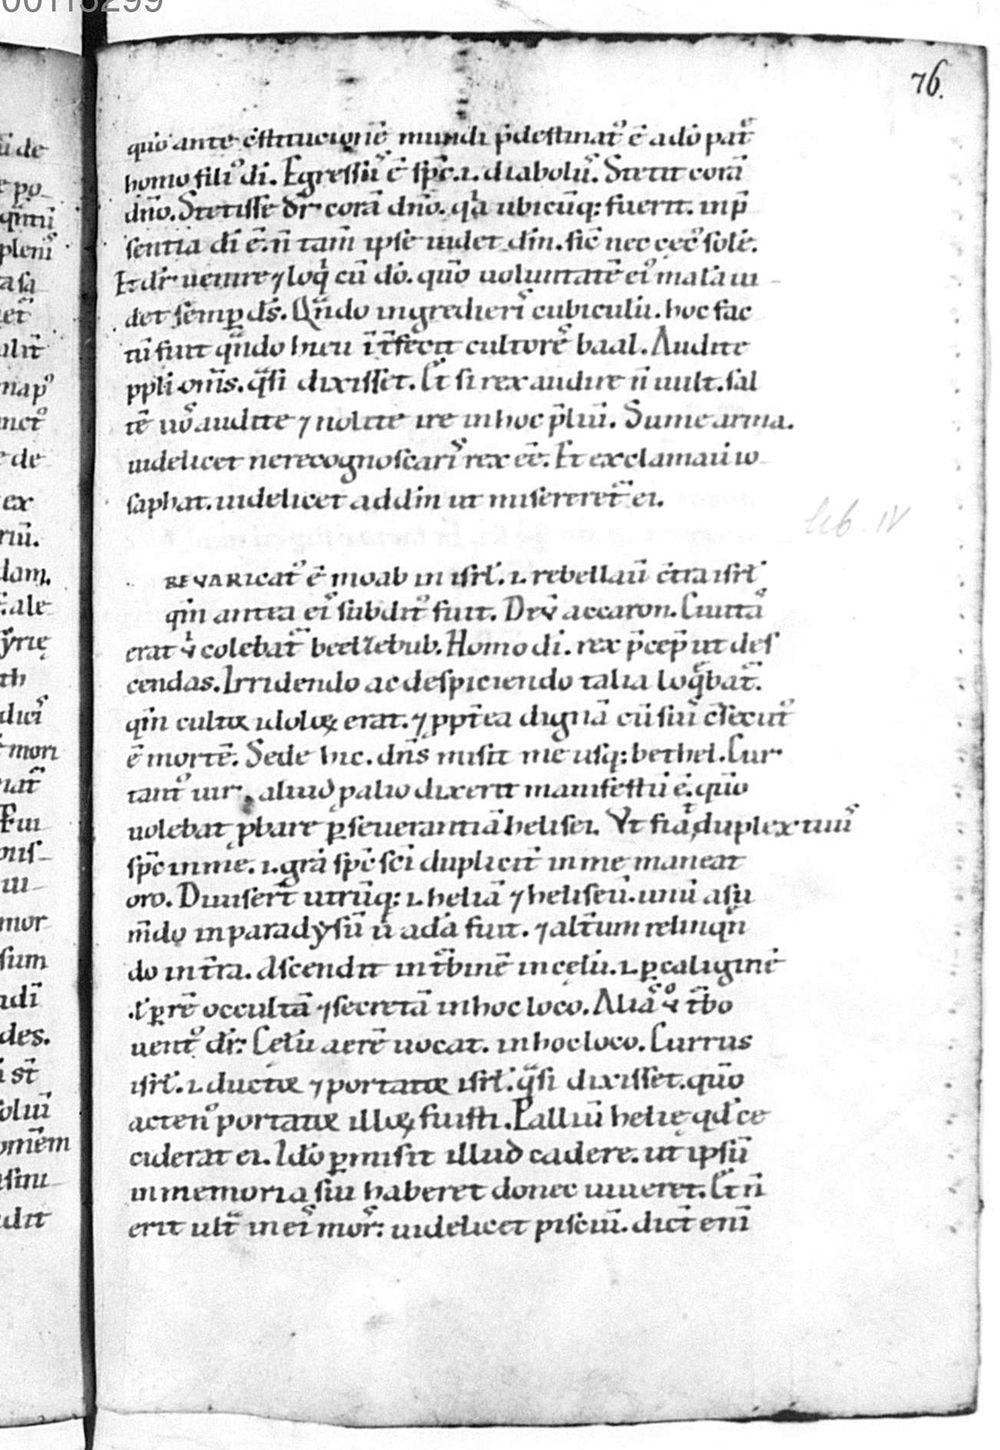 00113299
76.
quō ante c̄stitucionē mundi p̄destinat᷒ ē ado pat᷒
homo fili᷒ di. Egressu᷒ ē sp̄c .i. diabolu᷒. Stetit corā
dn̄o. Stetisse dr̄ corā dn̄o. q̄a ubicūq: fuerit. in p̄
sentia di ē. n̄ tam̄ ipse uidet dm̄. sic̄ nec cęc᷒ solē.
Et dr̄ uenire ⁊ loq̇ cū dō. quō uoluntatē ei᷒ malā ui
det semꝑ ds̄. Qn̄do ingredieri᷒ cubiculū. hoc fac
tū fuit qn̄do hieu īt̄fecit cultore᷒ baal. Audite
ppli om̄s. q̄si dixisset. Et si rex audire n̄ uult. sal
tē uo᷒ audite ⁊ nolite ire in hoc p̄liū. Sume arma.
uidelicet ne recognoscari᷒ rex eē. Et exclamauit io
saphat. uidelicet ad dm̄ ut misereret᷒ ei.
lib. IV
REVARicat᷒ ē moab in isrl̄ .i. rebellauit c̄tra isrl̄
qm̄ antea ei᷒ subdit᷒ fuit. Deū accaron. Ciuita᷒
erat ū colebat᷒ beelzebub. Homo di. rex p̄cep̄ ut des
cendas. Irridendo ac despiciendo talia loq̄bat᷒.
qm̄ cultor idoloꝝ erat. ⁊ ppt̄ea dignā cū suis c̄secut᷒
ē mortē. Sede hic. dn̄s misit me usq: bethel. Cur
tant᷒ uir aliud palio dixerit manifestū ē. quō
uolebat ꝓbare ꝑseuerantiā helisei. Vt fiat duplex tuus
sp̄c in me .i. gr̄a sp̄c sc̄i duplicit̄ in me maneat
oro. Diuisert̄ utrūq: .i. heliā ⁊ heliseū. unū asu
m̄do in paradysū ū adā fuit. ⁊ alt̄um relinqn̄
do in t̄ra. Ascendit in t̄binē in cęlū .i. ꝑ caliginē
.l ꝑ rē occultā ⁊ secretā in hoc loco. Alia᷒ ū t̄bo
uent᷒ dr̄: Celū aerē uocat. in hoc loco. Currus
isrl̄ .i. ductor ⁊ portator isrl̄. q̄si dixisset. quō
acten᷒ portator illoꝝ fuisti. Palliū helię qd̄ ce
ciderat ei. Idō ꝑmisit illud cadere. ut ipsū
in memoria sui haberet donec uiueret. Et n̄
erit ult̄ in ei᷒ mor᷒: uidelicet pisciū. dict̄ eni᷒